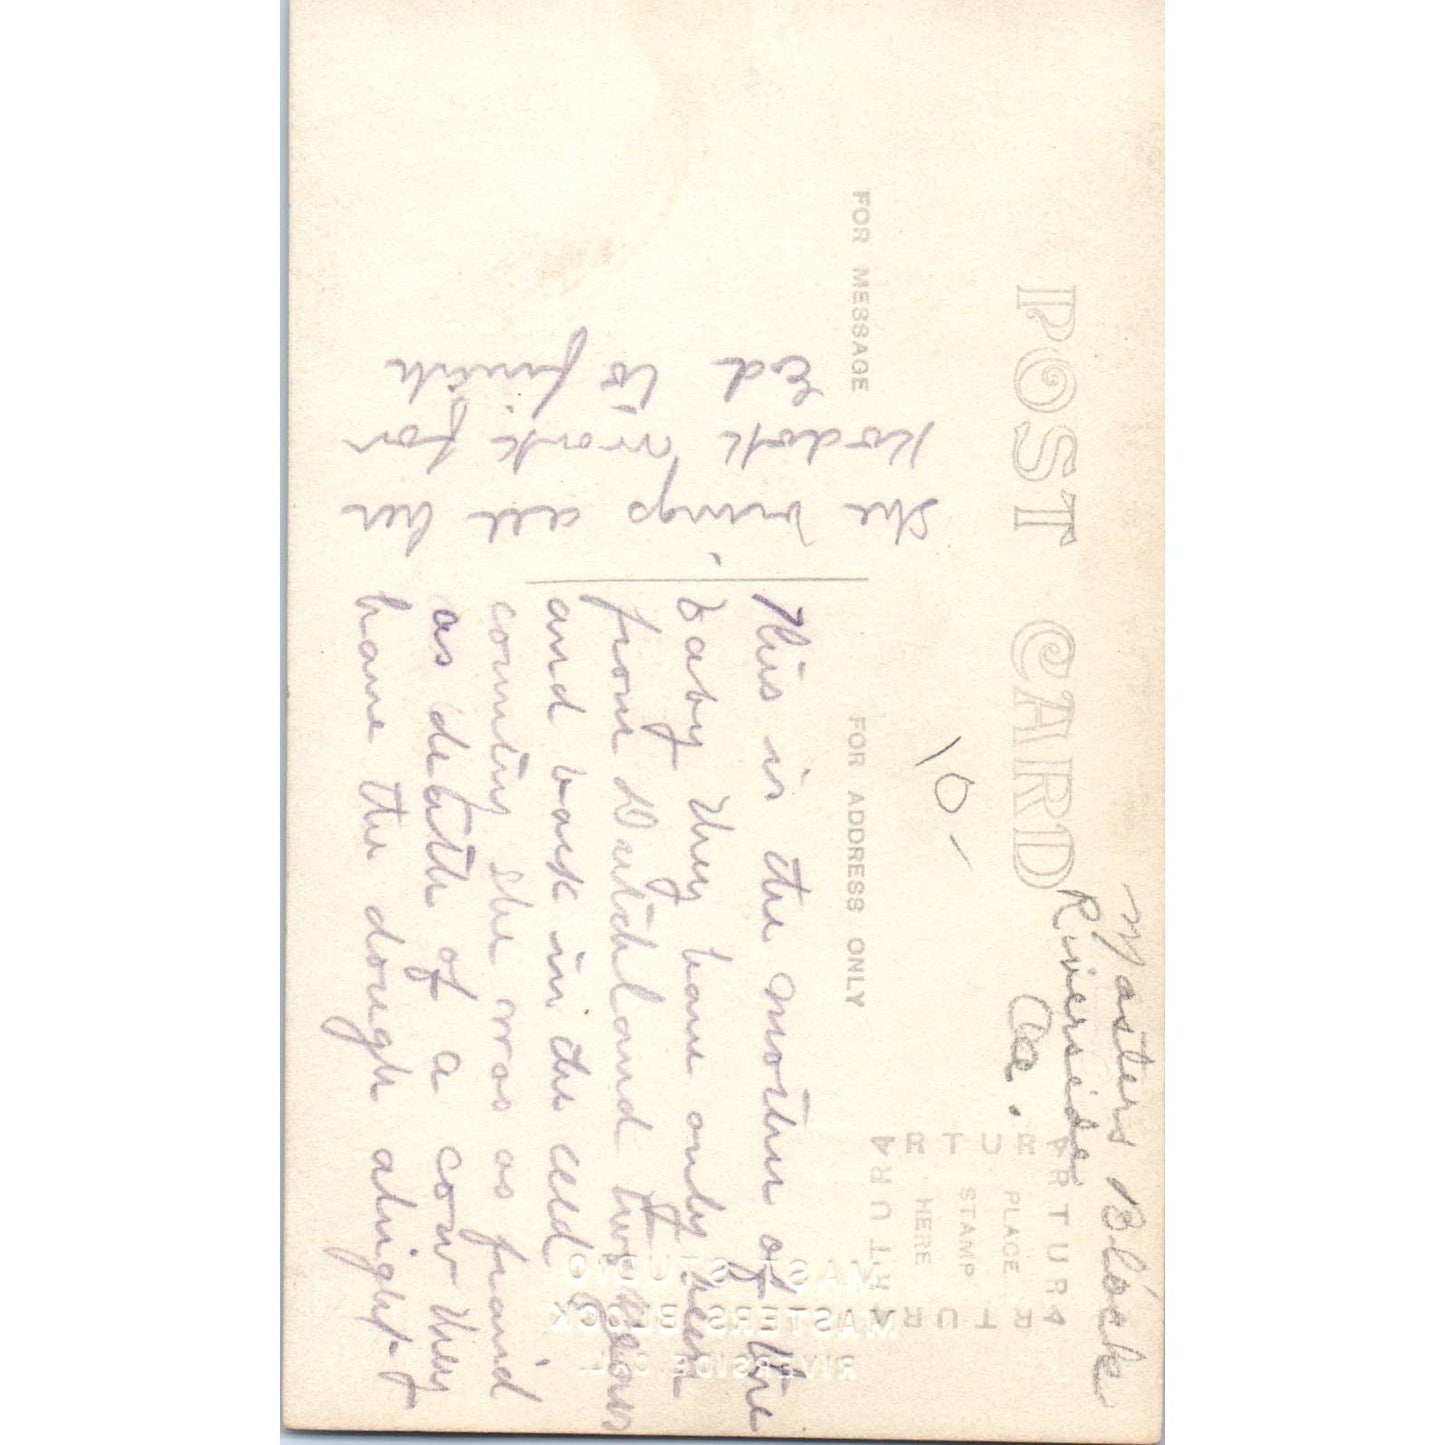 POST CARD
FOR MESSAGE
FOR ADDRESS ONLY
ARTURA
ARTURA
ARTURA
ARTURA
PLACE
STAMP
HERE
Masters Block
Riverside
Ca.
10-
This is the mother of the
baby they have only been
from Dutchland two years
and back in the old
country she was as fraid
as death of a cow they
have the dough alright
She brings all her
Kodak work for
Ed to finish
MAST STUDIO
MASTERS BLOCK
RIVERSIDE CAL.